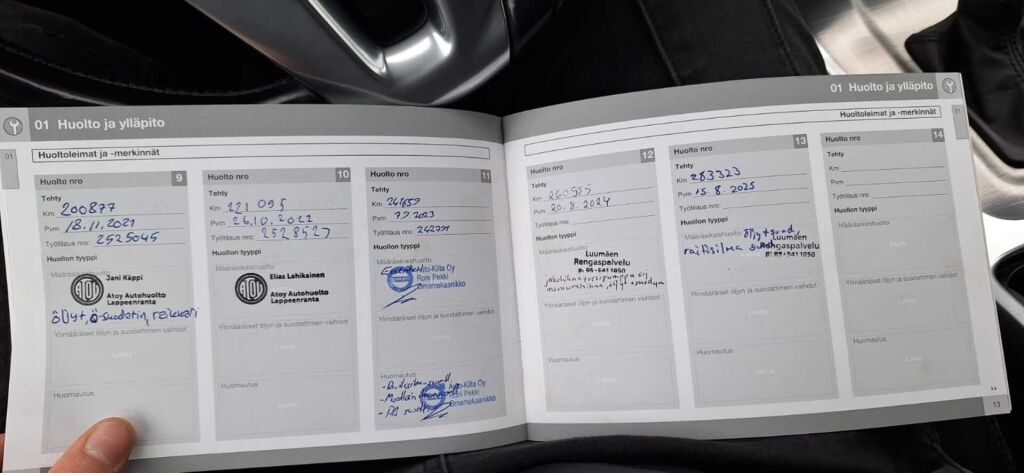 01 Huolto ja ylläpito
01
Huoltoleimat ja -merkinnät
Huolto nro 9
Tehty
Km 200877
Pvm 18.11.2021
Työtilaus nro: 2525045
Huollon tyyppi
Määräaikaishuolto
Jani Käppi
Atoy Autohuolto
Lappeenranta
öljyt, ö-suodatin, raikkari
Ylimääräiset öljyn ja suodattimen vaihdot
Leima
Huomautus
Huolto nro 10
Tehty
Km 221 095
Pvm 26.10.2022
Työtilaus nro: 2528527
Huollon tyyppi
Määräaikaishuolto
Elias Lahikainen
Atoy Autohuolto
Lappeenranta
Ylimääräiset öljyn ja suodattimen vaihdot
Leima
Huomautus
Leima
Huolto nro 11
Tehty
Km
Pvm 2023
Työtilaus nro:
Huollon tyyppi
Määräaikaishuolto
Auto-Kilta Oy
Roni Pekki
Omamekaanikko
Ylimääräiset öljyn ja suodattimen vaihdot
Leima
Huomautus
Auto-Kilta Oy
Roni Pekki
Omamekaanikko
01 Huolto ja ylläpito
01
Huoltoleimat ja -merkinnät
Huolto nro 12
Tehty
Km
Pvm 20.8.2024
Työtilaus nro:
Huollon tyyppi
Määräaikaishuolto
Luumäen
Rengaspalvelu
Ylimääräiset öljyn ja suodattimen vaihdot
Leima
Huomautus
Huolto nro 13
Tehty
Km 283323
Pvm 15.8.2025
Työtilaus nro:
Huollon tyyppi
Määräaikaishuolto
Luumäen
Rengaspalvelu
raitisilma
Ylimääräiset öljyn ja suodattimen vaihdot
Leima
Huomautus
Huolto nro 14
Tehty
Km
Pvm
Työtilaus nro:
Huollon tyyppi
Määräaikaishuolto
Leima
Ylimääräiset öljyn ja suodattimen vaihdot
Leima
Huomautus
13